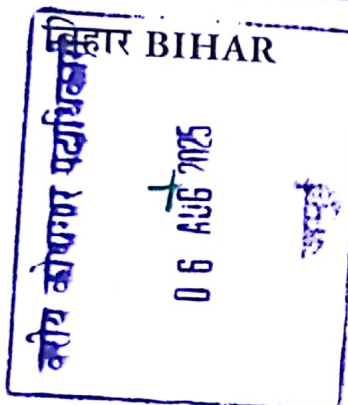 बिहार BIHAR
वरीय कोषागार पदाधिकारी
06 AUG 2025